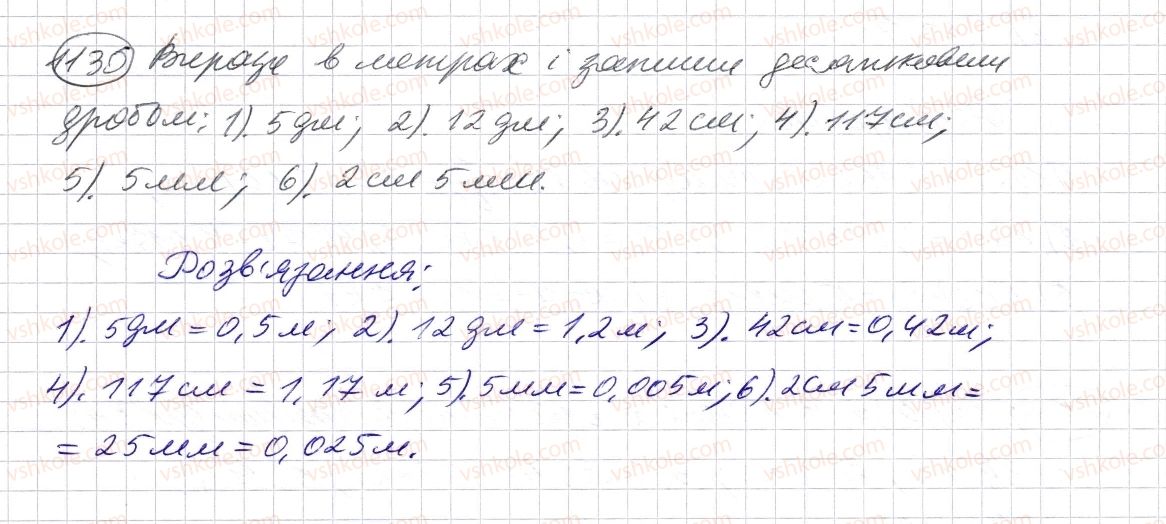 1130 Вирази в метрах і запиши десятковим
дробом: 1). 5дм; 2). 12 дм; 3). 42 см; 4). 117см;
5). 5мм; 6). 2см 5мм.
Розв'язання:
1). 5дм = 0,5м; 2). 12 дм = 1,2м; 3). 42см = 0,42м;
4). 117см = 1,17 м; 5). 5мм = 0,005м; 6). 2см 5мм =
= 25мм = 0,025м.